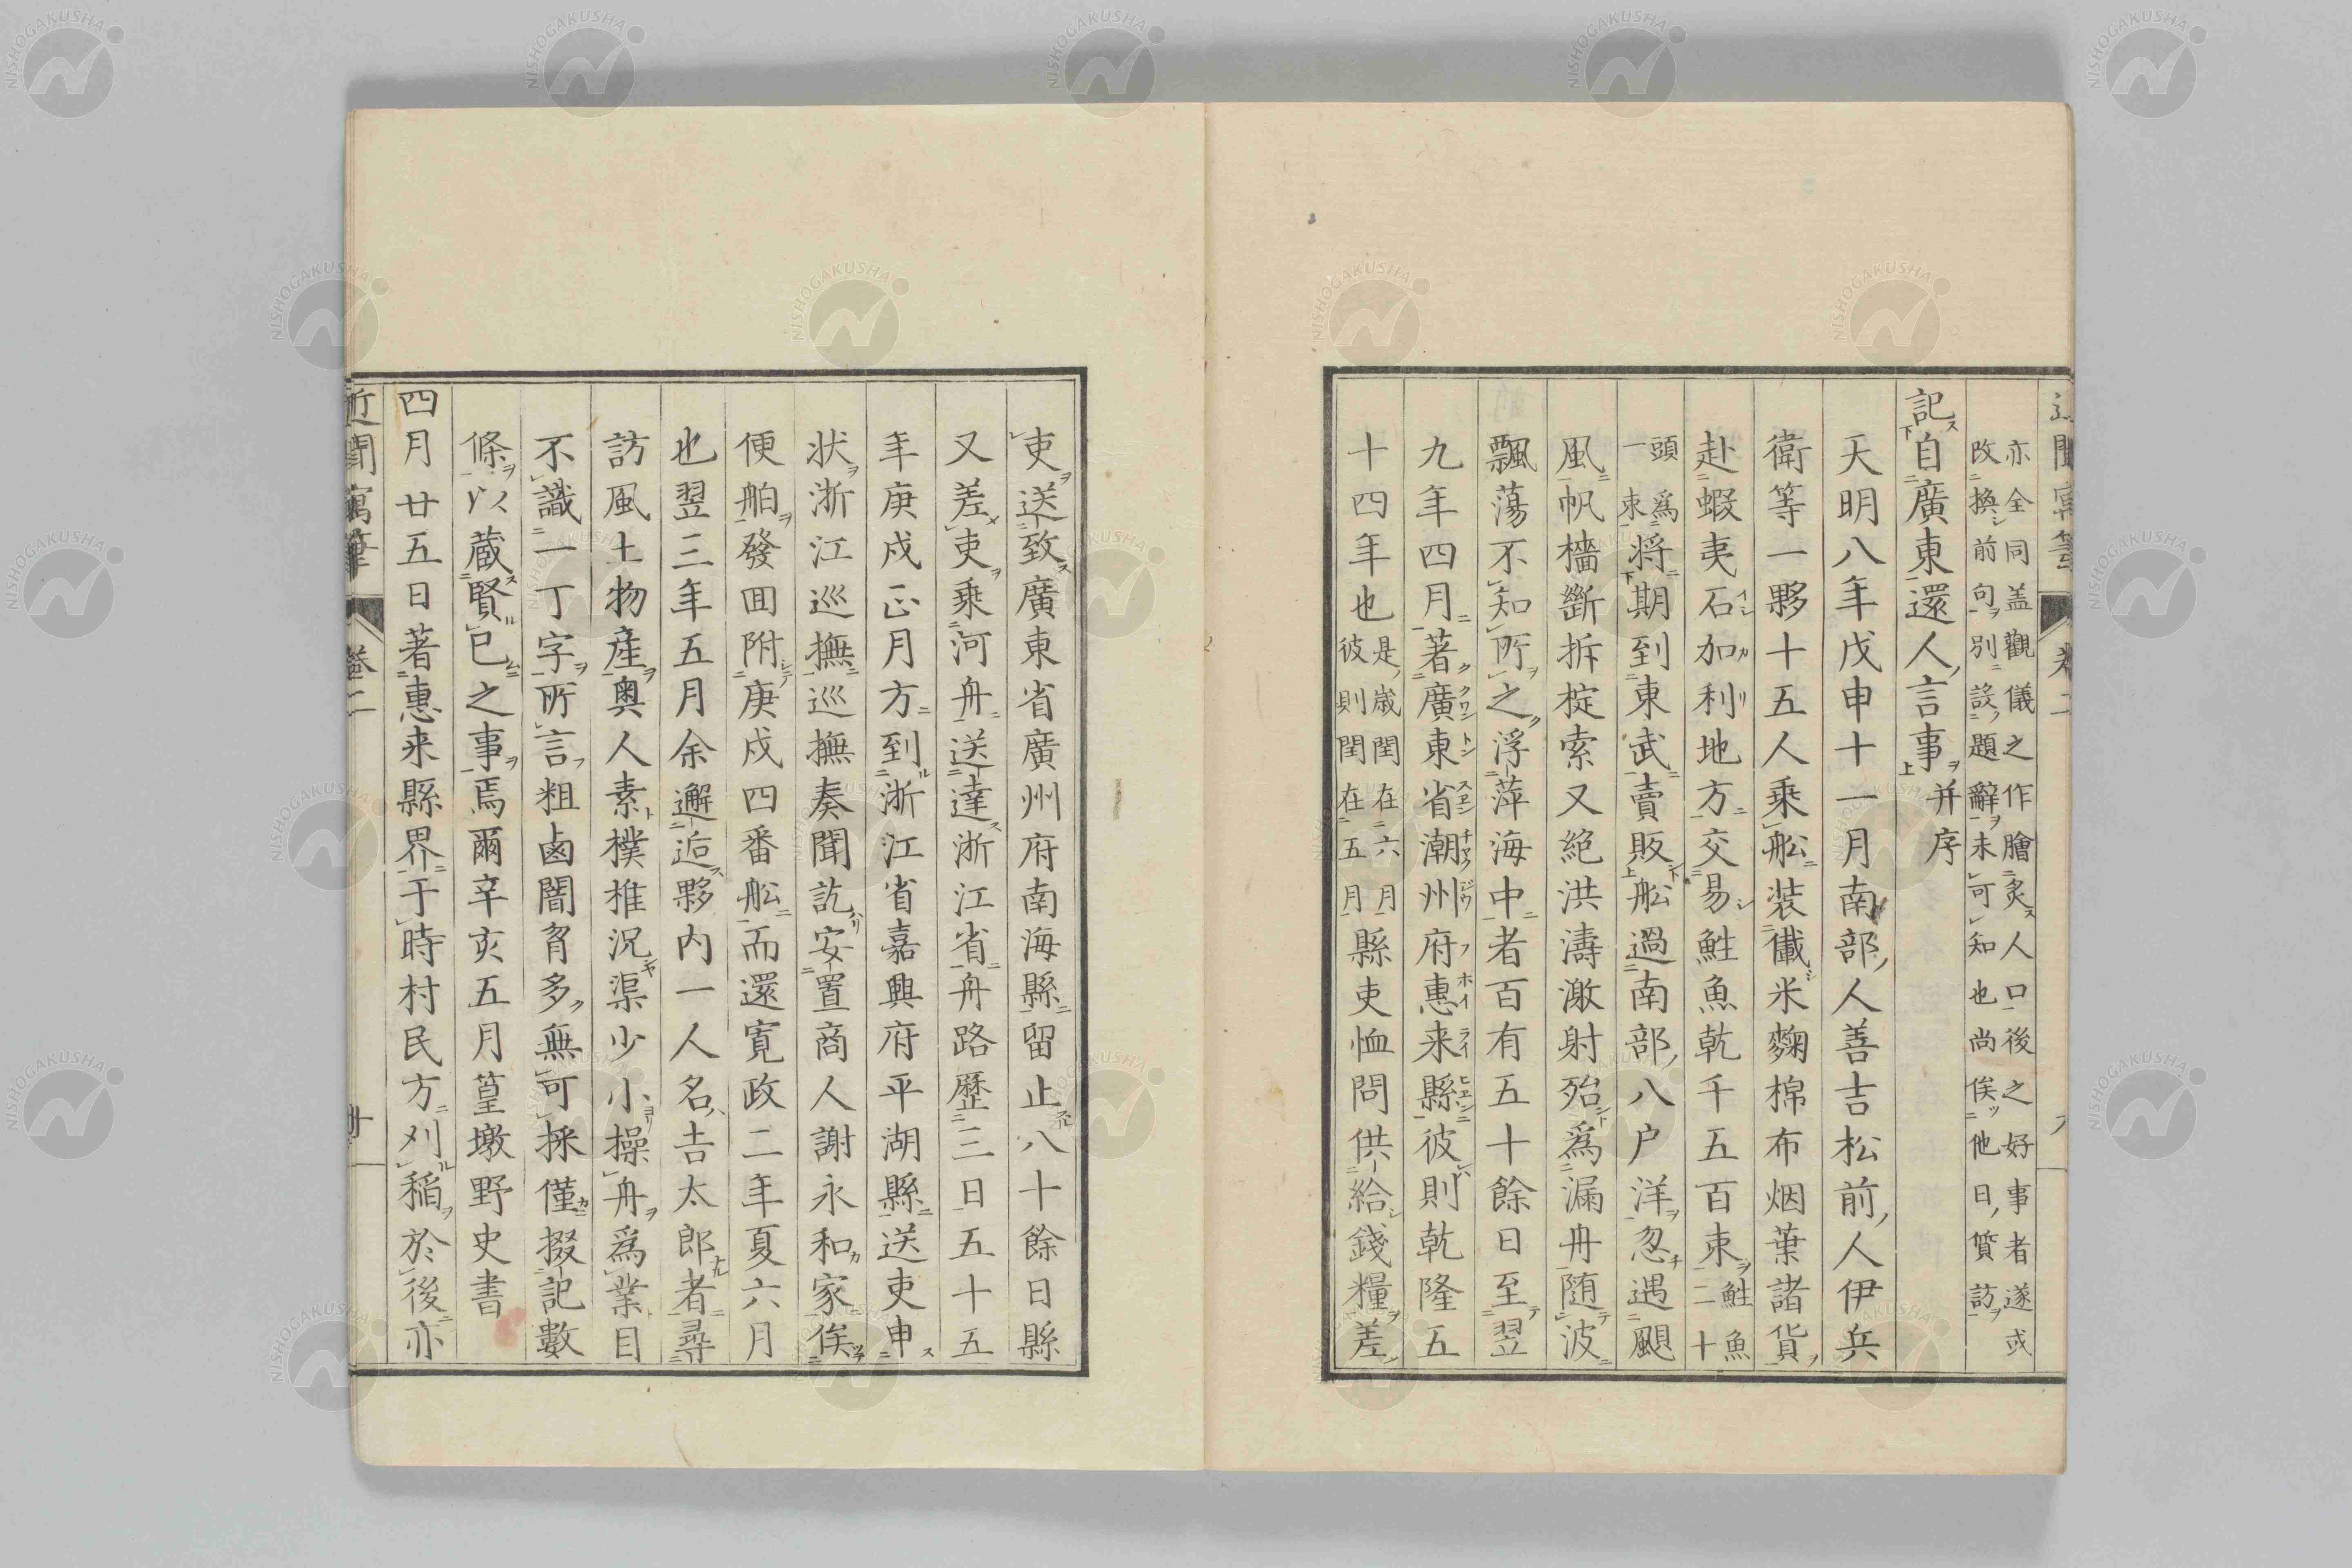 亦全同盖觀儀之作膾炙人口後之好事者遂或
改換前句別設題辭未可知也尚俟他日質訪
記自廣東還人言事并序
天明八年戊申十一月南部人善吉松前人伊兵
衛等一夥十五人乘舩装儎米麴棉布烟葉諸貨
赴蝦夷石加利地方交易鮏魚乾千五百束鮏魚二十
頭爲一束將期到東武賣販舩過南部八户洋忽遇颶
風帆檣斷拆椗索又絶洪濤激射殆爲漏舟随波
飄蕩不知所之浮萍海中者百有五十餘日至翌
九年四月著廣東省潮州府惠来縣彼則乾隆五
十四年也是歳閏在六月彼則閏在五月縣吏恤問供給錢糧差
吏送致廣東省廣州府南海縣留止八十餘日縣
又差吏乘河舟送達浙江省舟路歷三日五十五
年庚戍正月方到浙江省嘉興府平湖縣送吏申
状浙江巡撫巡撫奏聞訖安置商人謝永和家俟
便舶發回附庚戍四番舩而還寛政二年夏六月
也翌三年五月余邂逅夥内一人名吉太郎者尋
訪風土物産奥人素樸椎况渠少小操舟爲業目
不識一丁字所言粗鹵闇肓多無可採僅掇記數
條以蔵賢已之事焉爾辛亥五月篁墩野史書
四月廿五日著惠来縣界于時村民方刈稲於後亦
近聞寓筆 卷二